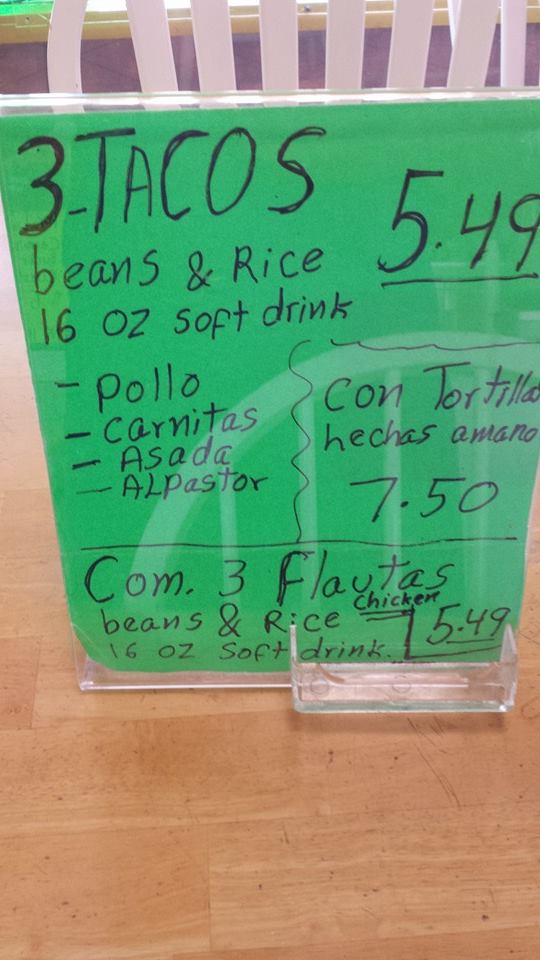 3-TACOS
5.49
beans & Rice
16 oz soft drink
- pollo
- carnitas
- Asada
- ALpastor
con Tortillas
hechas amano
7.50
Com. 3 Flautas
Chicken
beans & Rice
5.49
16 oz soft drink.